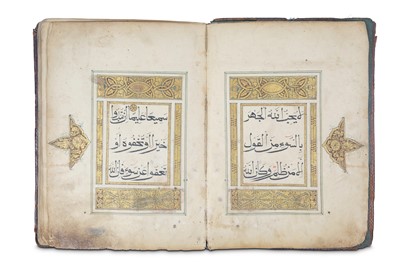 لا يحب الله الجهر
بالسوء من القول
إلا من ظلم وكان الله
سميعا عليما إن تبدوا
خيرا أو تخفوه أو
تعفوا عن سوء فإن الله